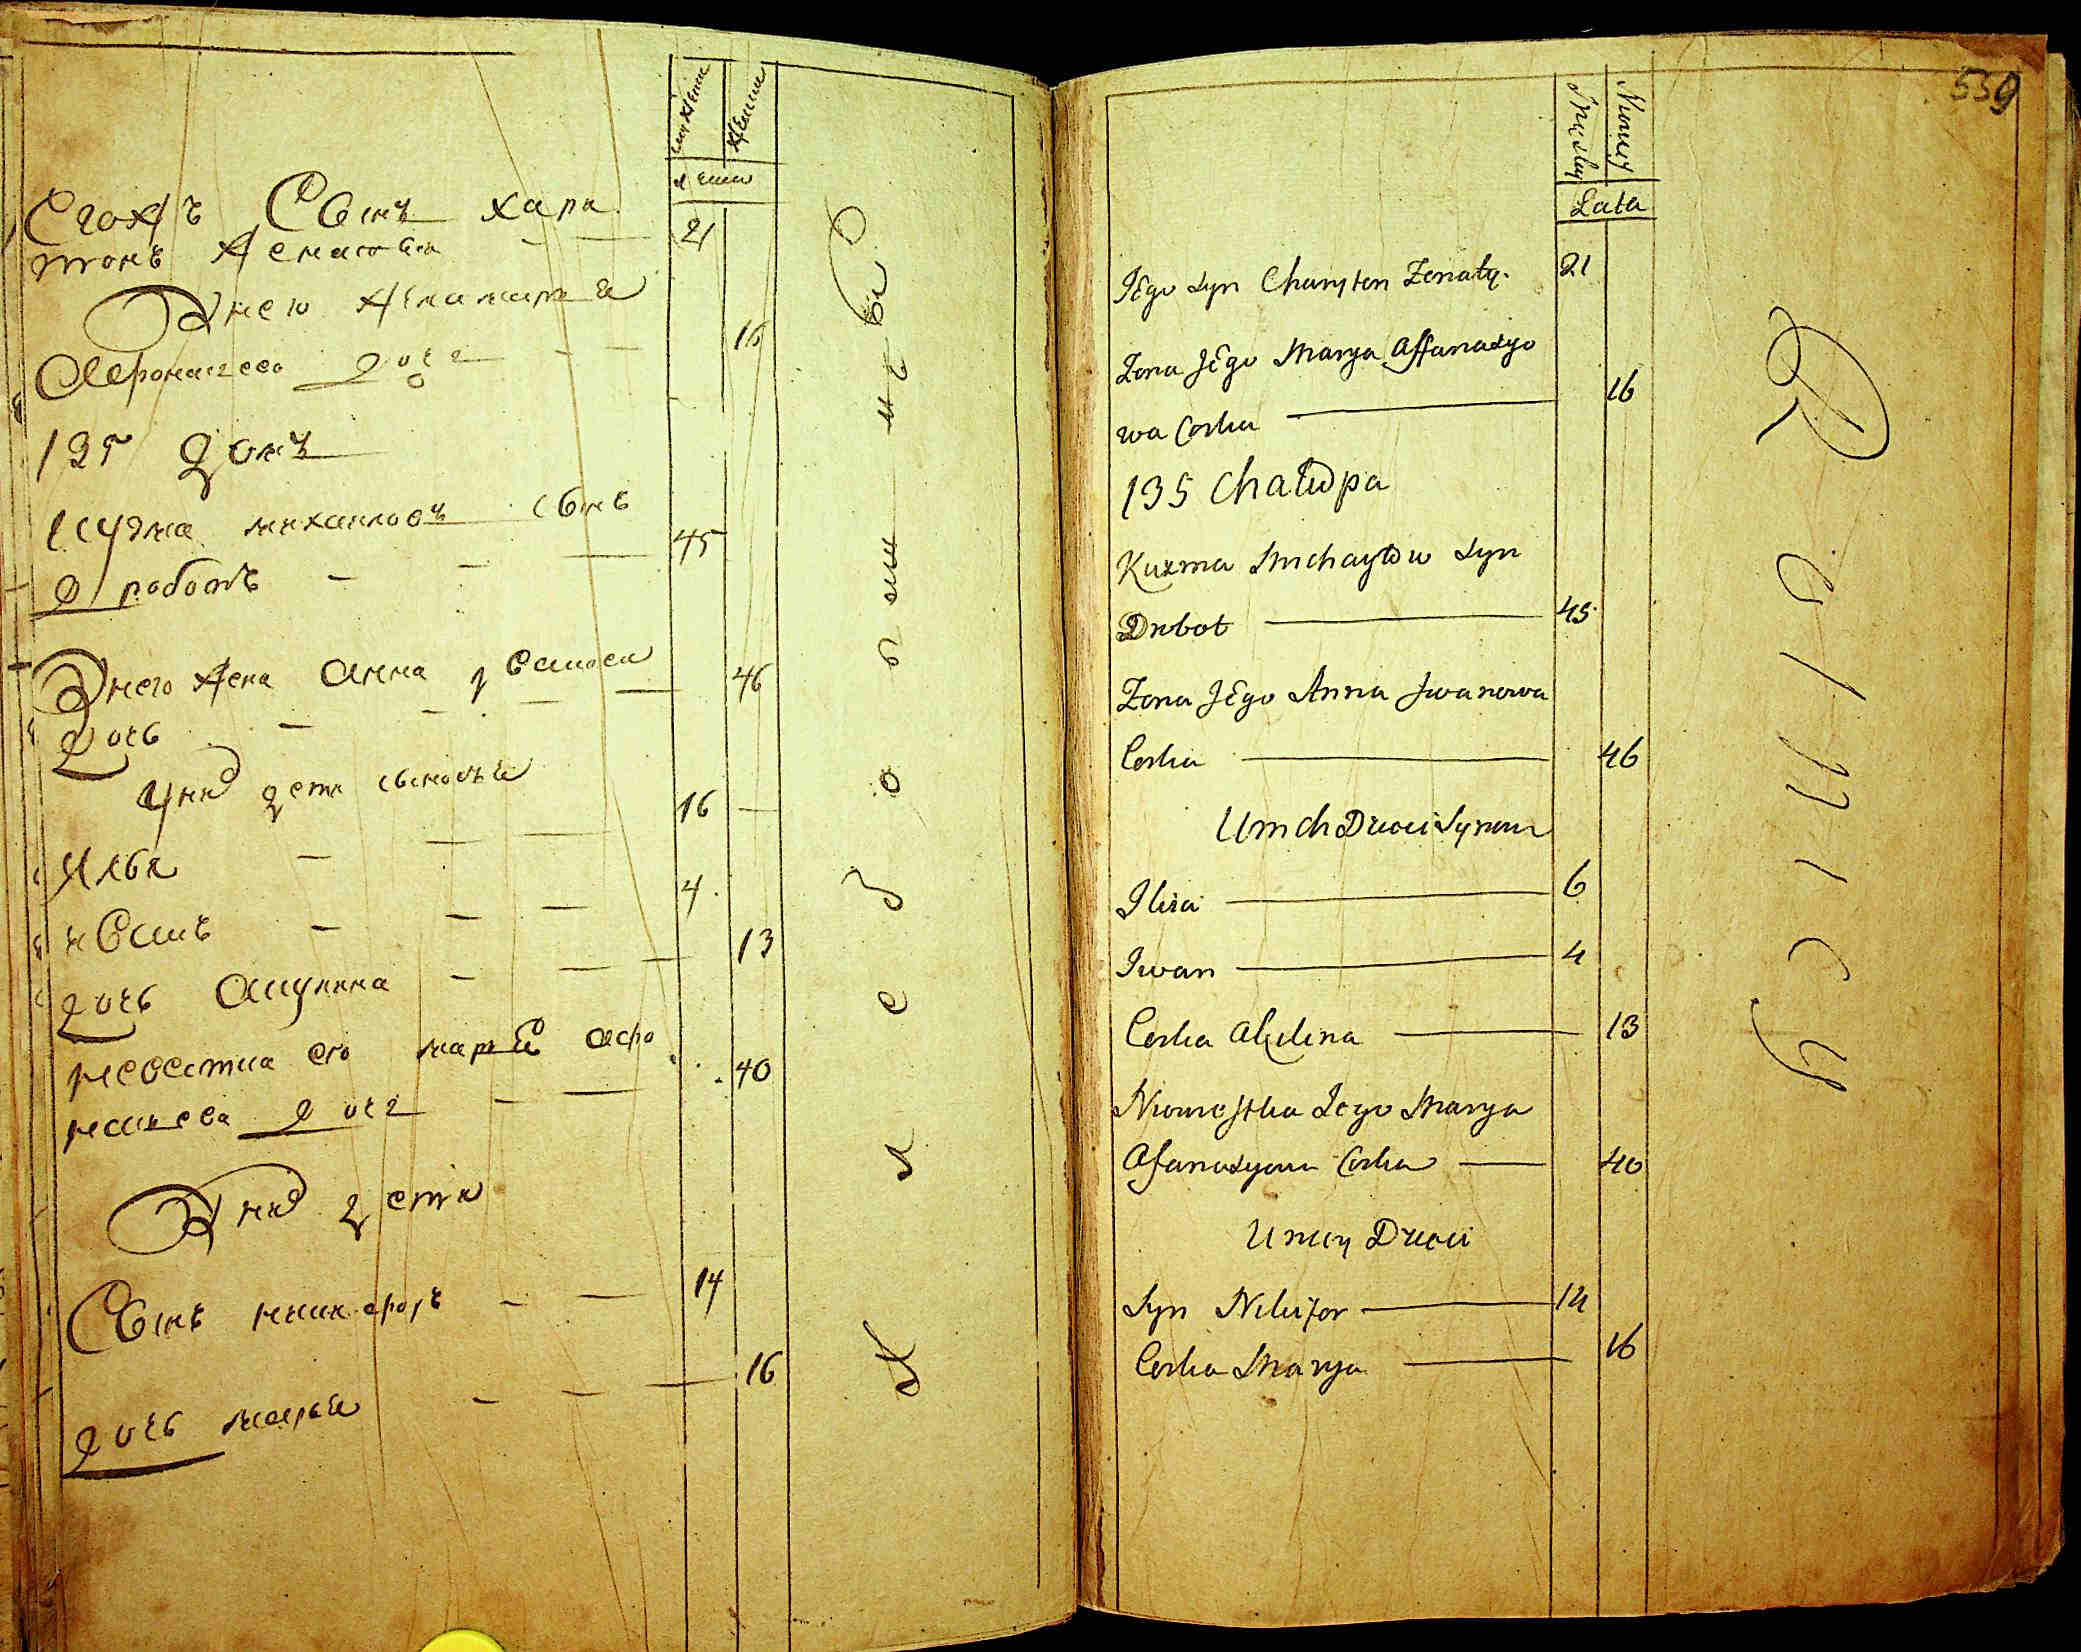 мужеск
женск
лета
Егожъ Сынъ Хари
тонъ женатой 21
Унею жена марья
Афонасева дочь 16
135 домъ
Кузма михаиловъ сынъ
дроботъ 45
Унего жена анна Иванова
дочь 46
Уних дети сыновья
Илья 16
иванъ 4
дочь акулина 13
невестка его марья афо
насьева дочь 40
Уних дети
Сынъ никифоръ 14
дочь марья 16
Хлебопашцовъ
539
Męzkey
Niewiey
Lata
Jego Syn Charyton Zonaty 21
Zona Jego Marya Affanasyo
wa Corka 16
135 Chałupa
Kuzma Michayłow Syn
Drobot 45
Zona Jego Anna Iwanowa
Corka 46
U nich Dzieci Synowe
Ilia 6
Iwan 4
Corka Akulina 13
Niewestka Jego Marya
Afanasyowa Corka 40
U niey Dzieci
Syn Nikifor 14
Corka Marya 16
Rolnicy